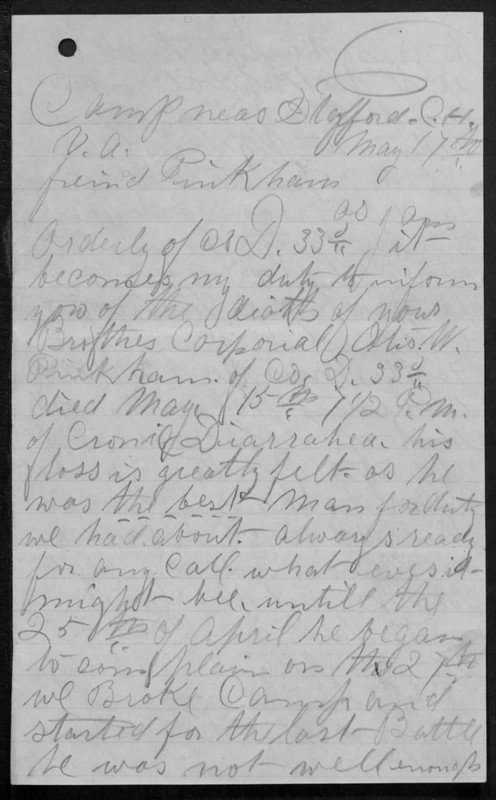 Camp near Stafford. C.H.
V.A. May 17th
freind Pinkham
as I am
Orderly of Co D. 33d it
becomes my duty to inform
you of the death of your
Brother Corporal Otis W.
Pinkham. of Co, D. 33d
died May 15th 7 1/2 P.m.
of Cronic Diarrahea. his
loss is greatly felt. as he
was the best man for duty
we had about. always ready
for any Call. what ever it
might bee. untill the
25th of April he began
to complain on the 27th
we Broke Camp and
started for the last Battle
he was not well enough